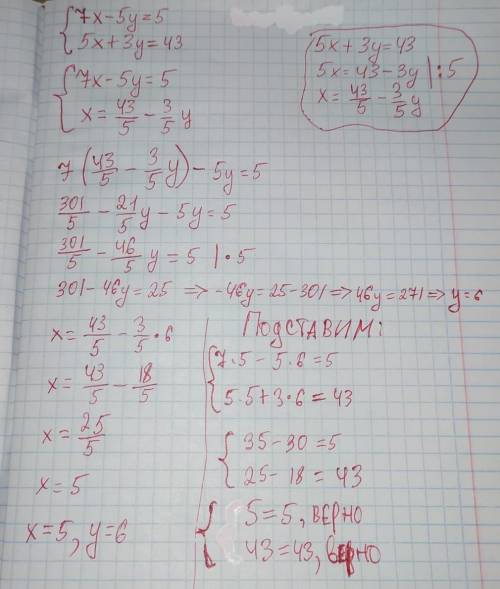 7x-5y=5
5x+3y=43
7x-5y=5
x=43/5-3/5y
5x+3y=43
5x=43-3y|:5
x=43/5-3/5y
7(43/5-3/5y)-5y=5
301/5-21/5y-5y=5
301/5-46/5y=5 |·5
301-46y=25 => -46y=25-301=>46y=271=>y=6
x=43/5-3/5·6
x=43/5-18/5
x=25/5
x=5
x=5, y=6
Подставим:
7·5-5·6=5
5·5+3·6=43
35-30=5
25-18=43
5=5, верно
43=43, верно